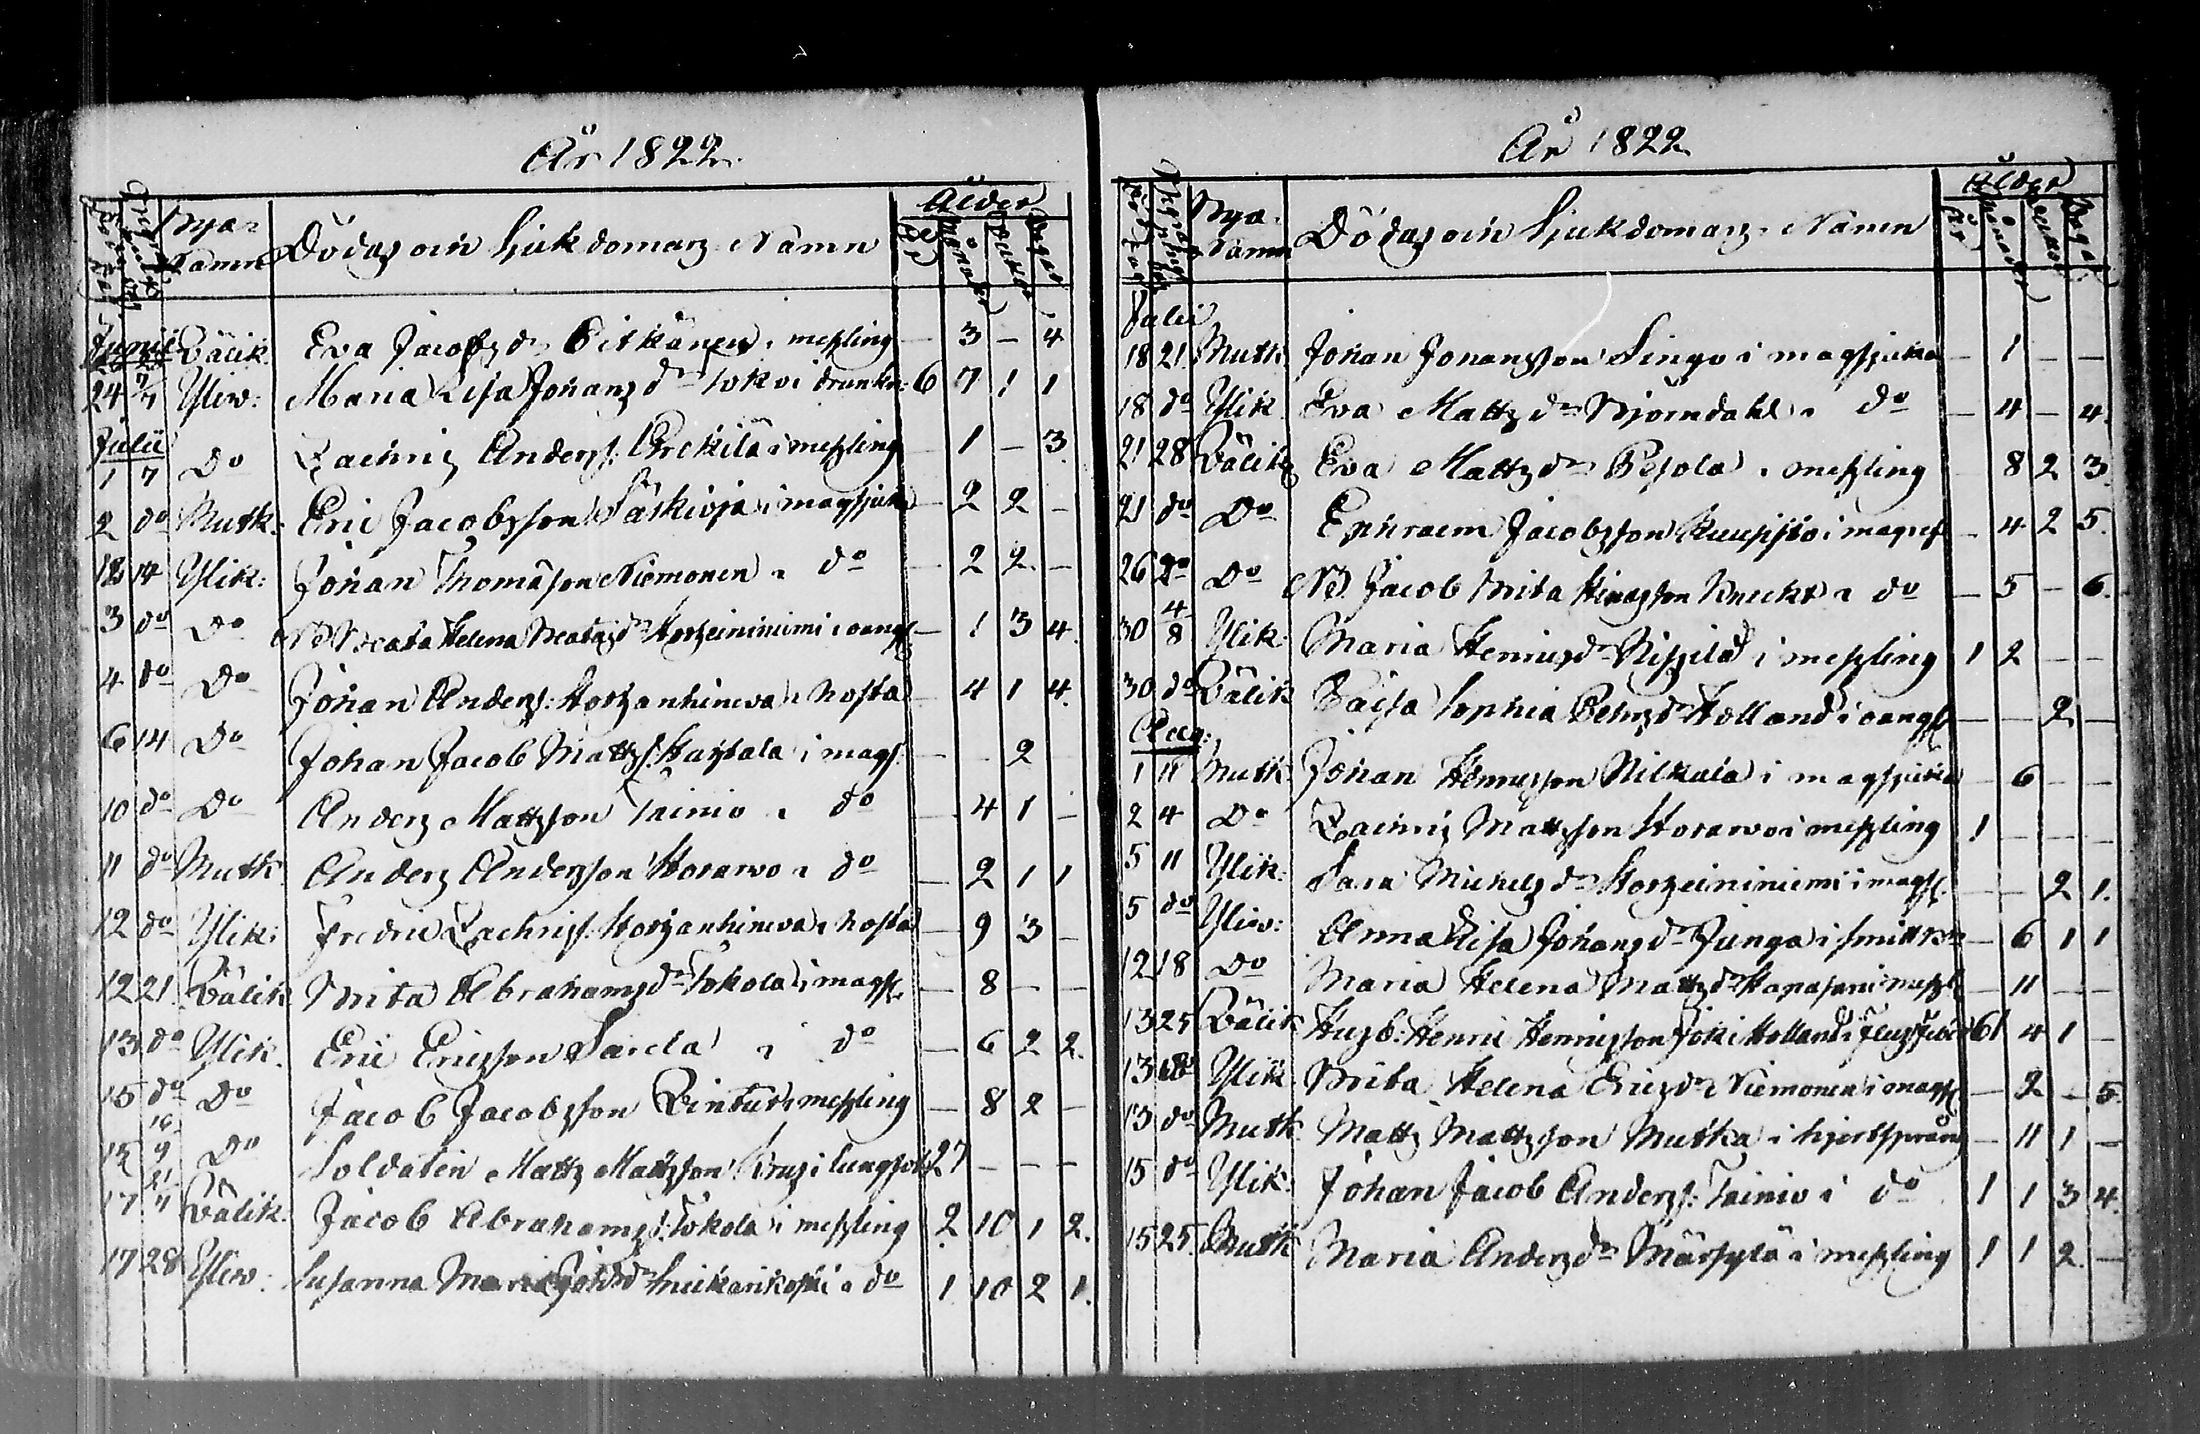 År 1822.
Bya- Namn Dödas och Sjukdomars Namn Ålder År Månader Veckor Dagar
Junii
Wälik. Eva Jacobsdr Pitkänen i messling — 3 — 4
24 7/7 Yliw: Maria Lisa Johansdr Tokoi drunkn: 6 7 1 1
Julii
1 7 Do Zachris Anders: Erckilä i messling — 1 — 3.
2 do Mutk: Eric Jacobsson Säskioja i magsjuka — 2 2 —
12 14 Ylik: Johan Thomasson Niemonen i do — 2 2 —
3 do Do NB Beata Helena Beatasdr Korzeininiemi i oangf — 1 3 4.
4 do Do Johan Anders: Korzanhinwa i hosta — 4 1 4.
6 14 Do Johan Jacob Matts: i mags: — — 2
10 do Do Anders Mattsson Tainio i do — 4 1 —
11 do Mutk: Anders Andersson Korarwo i do — 2 1 1
12 do Ylik: Fredric Zachriss: Korzanhinwa i hosta — 9 3 —
12 21 Wälik Brita Abrahamsdr Tokola i magsj. — 8 — —
13 do Ylik. Eric Ericsson Sarela i do — 6 2 2.
15 do Do Jacob Jacobsson Wintur i messling — 8 2 —
15 16/9 Do Soldaten Matts Mattsson i lungsot 27 — — —
17 21/11 Wälik: Jacob Abrahams: Tokola i messling 2 10 1 2.
17 28 Yliw: Susanna Maria i do 1 10 2 1.
År 1822
Bya- Namn Dödas och Sjukdomars Namn Ålder År Månader Veckor Dagar
Julii
18 21 Mutk: Johan Johansson Singo i magsjuka — 1 — —
18 do Ylik Eva Mattsdr Björndahl i do — 4 — 4.
21 28 Wälik Eva Mattsdr Pesola i messling — 8 2 3.
21 do Do Ephraim Jacobsson Kuusisto i magref — 4 2 5.
26 do Do NB Jacob Brita Knickt i do — 5 — 6.
30 4/8 Ylik: Maria Henricsdr Nissilä i messling 1 2 — —
30 do Wälik Caisa Sophia Holland i oangf — — 2 —
Aug:
1 11 Mutk: Johan Henricsson Nilkula i magsjuka — 6 — —
2 4 Do Zachris Mattsson Korarwo i messling 1 — — —
5 11 Ylik: Sara Michelsdr Korzeininiemi i magsj. — — 2 1.
5 do Yliw: Anna Lisa Johansdr Junga i — 6 1 1
12 18 Do Maria Helena Mattsdr Hapasari messl: — 11 — —
13 25 Wälik Husb: Henric Henricsson Joki Holland i 61 4 1 —
13 18 Ylik: Brita Helena Ericsdr Niemonen i magsj — 2 — 5.
13 do Mutk Matts Mattsson Mutka i hjertsprång — 11 1 —
15 do Ylik: Johan Jacob Anders: Tainio i do 1 1 3 4.
15 25 Mutk Maria Andersdr Märsylä i messling 1 1 2 —